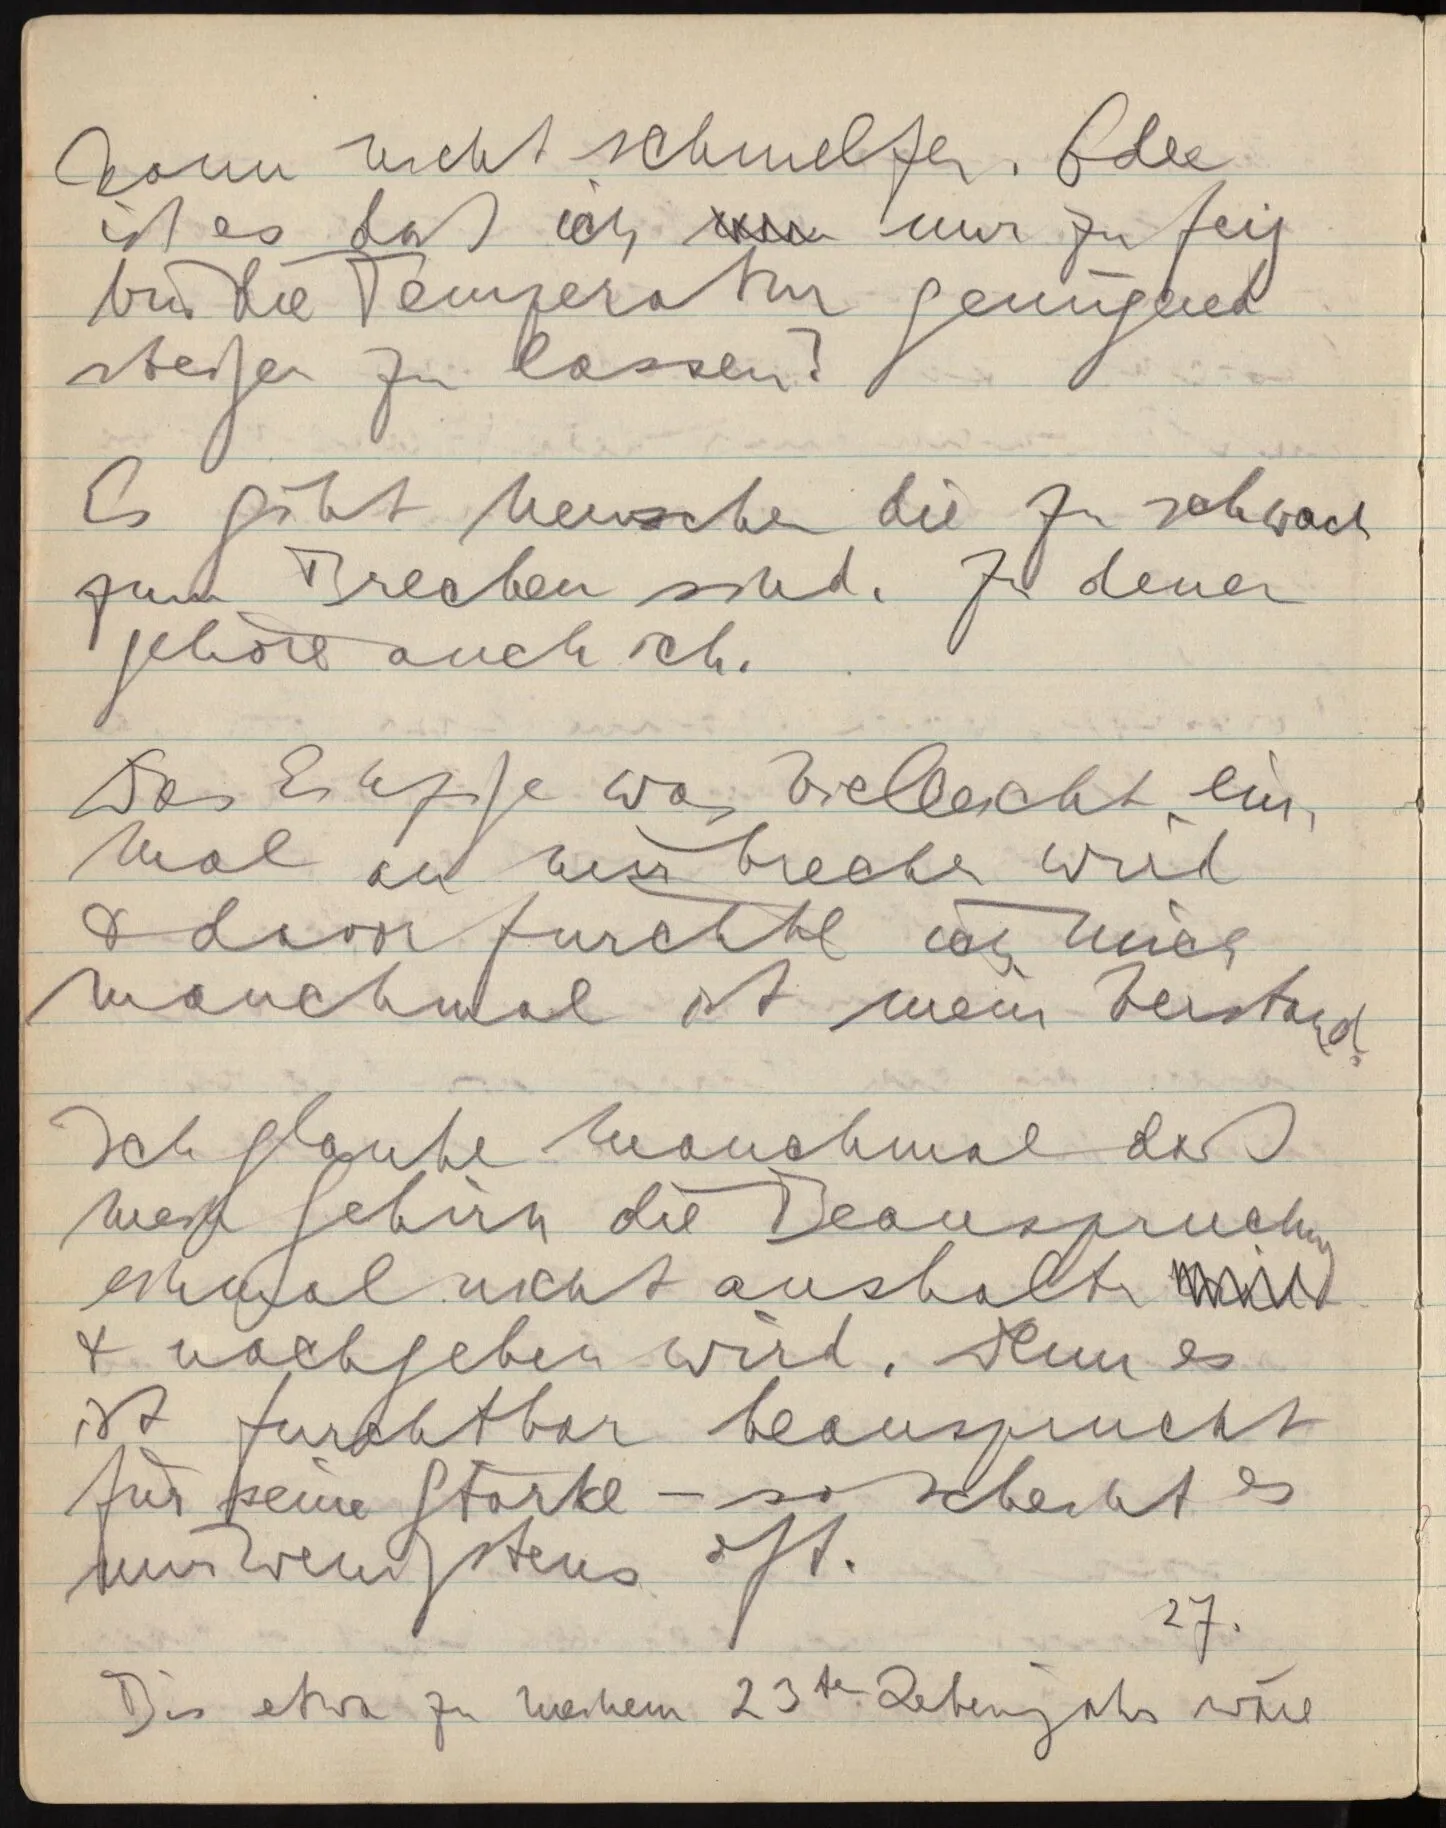 kann nicht schmelzen. Oder
ist es daß ich nur zu feig
bin die Temperatur genügend
steigen zu lassen?
Es gibt Menschen die zu schwach
zum Brechen sind. Zu denen
gehöre auch ich.
Das Einzige was vielleicht ein¬
mal an mir brechen wird
& davor fürchte ich mich
manchmal ist mein Verstand.
Ich glaube manchmal daß
mein Gehirn die Beanspruchung
einmal nicht aushalten
& nachgeben wird. Denn es
ist furchtbar beansprucht
für seine Stärke – so scheint es
mir wenigstens oft.
27.
Bis etwa zu meinem 23ten Lebensjahr wäre